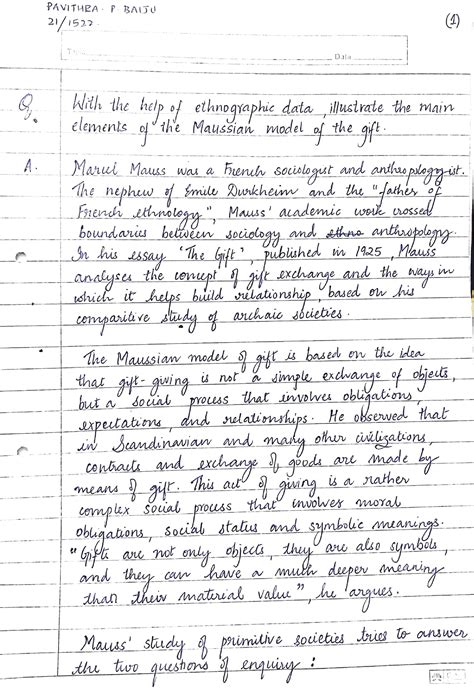 PAVITHRA. P BAIJU
21/1527
(1)
Date
Q. With the help of ethnographic data, illustrate the main
elements of the Maussian model of the gift.
A. Marcel Mauss was a French sociologist and anthropologyist.
The nephew of Emile Durkheim and the "father of
French ethnology", Mauss' academic work crossed
boundaries between sociology and ethno anthropology.
In his essay 'The Gift', published in 1925, Mauss
analyses the concept of gift exchange and the ways in
which it helps build relationship, based on his
comparitive study of archaic societies.
The Maussian model of gift is based on the idea
that gift-giving is not a simple exchange of objects,
but a social process that involves obligations,
expectations, and relationships. He observed that
in Scandinavian and many other civilizations,
contracts and exchange of goods are made by
means of gift. This act of giving is a rather
complex social process that involves moral
obligations, social status and symbolic meanings.
"Gifts are not only objects, they are also symbols,
and they can have a much deeper meaning
than their material value", he argues.
Mauss' study of primitive societies tries to answer
the two questions of enquiry :